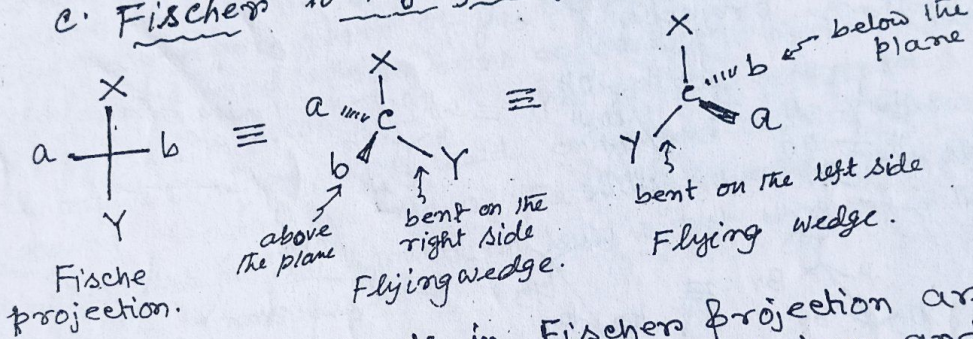 c. Fischer
X
a b
Y
Fische
projection.
≡
X
a C
b Y
above
the plane
bent on the
right side
Flying wedge.
≡
X
C b
a
Y
below the
plane
bent on the left side
Flying wedge.
in Fischer projection